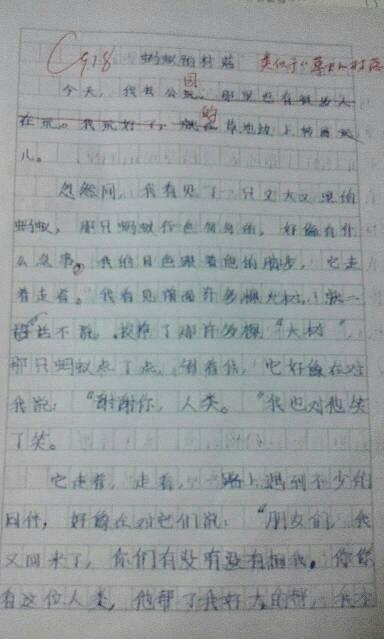 918 蚂蚁的村落 类似于“草上的村落
今天，我去公园，那里也有很多人
在玩。我玩好了，就在的草地边上转圈玩
儿。
忽然间，我看见了一只又大又黑的
蚂蚁，那只蚂蚁行色匆匆的，好像有什
么急事。我的目色跟着他的脚步，它走
着走着。我看见前面许多棵大树，就一
话不说，拔掉了那许多棵“大树”，
那只蚂蚁点了点，朝着我，它好像在对
我说：“谢谢你，人类。”我也对他笑
了笑。
它走着，走着，一路上遇到不少的
同伴，好像在对它们说：“朋友们，我
又回来了，你们有没有没有想我，你们
看这位人类，他帮了我好大的帮，我